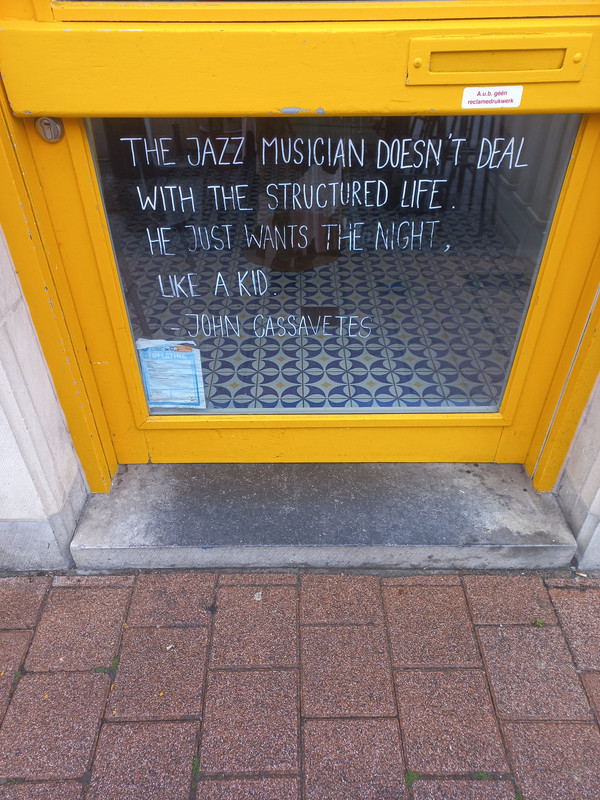 A.u.b. géén
reclamedrukwerk
THE JAZZ MUSICIAN DOESN'T DEAL
WITH THE STRUCTURED LIFE.
HE JUST WANTS THE NIGHT,
LIKE A KID.
- JOHN CASSAVETES